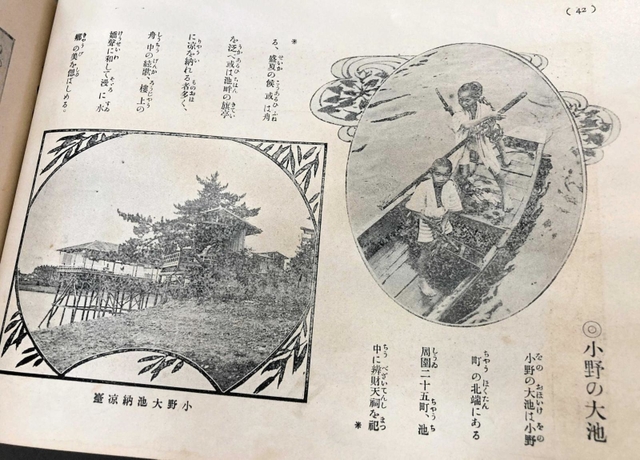 (42)
◎小野の大池
小野の大池は小野
町の北端にある
周圍二十五町、池
中に辨財天祠を祀
※
※
る、盛夏の候、或は舟
を泛べ或は池畔の旗亭
に凉を納れる者多く、
舟中の絃歌、樓上の
嬌聲に和して漫に水
郷の美を偲ばしめる。
小野大池納凉臺